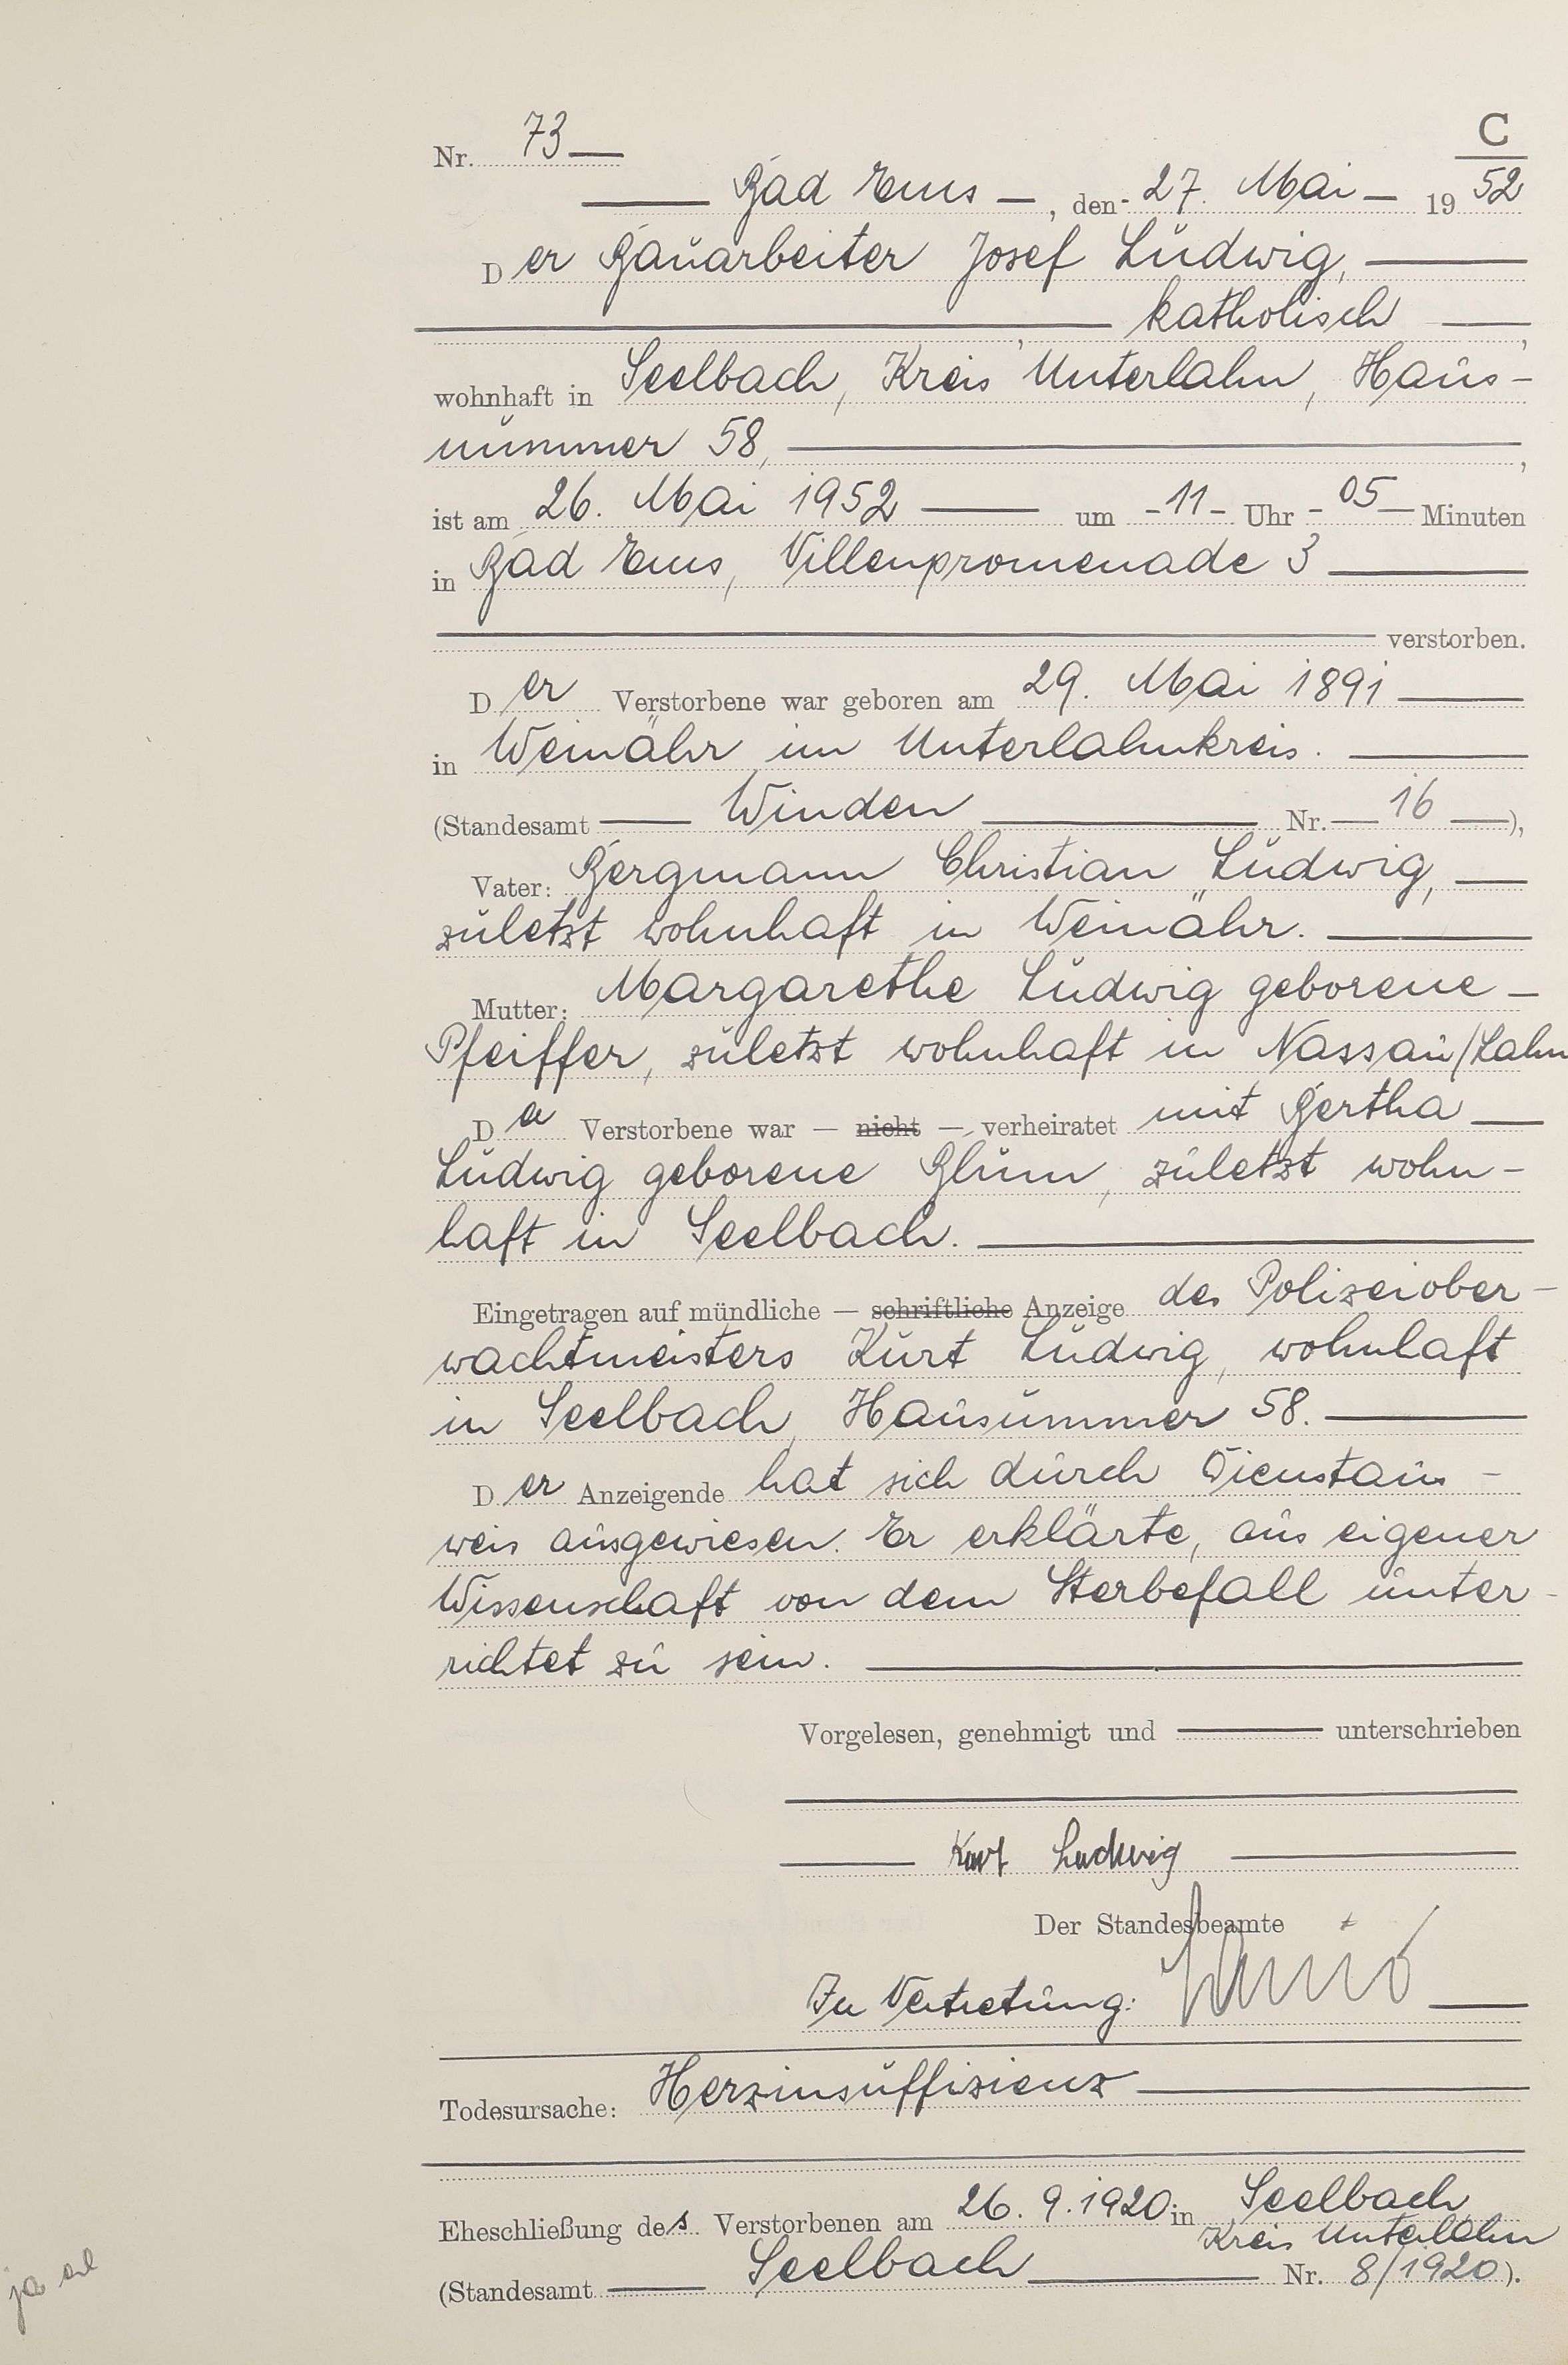 C
Nr. 73
Bad Ems, den 27. Mai 1952
Der Bauarbeiter Josef Ludwig,
, katholisch ,
wohnhaft in Seelbach, Kreis Unterlahn, Haus-
nummer 58, ,
ist am 26. Mai 1952 um -11- Uhr - 05 - Minuten
in Bad Ems, Villenpromenade 3
verstorben.
Der Verstorbene war geboren am 29. Mai 1891
in Weinähr im Unterlahnkreis.
(Standesamt Winden Nr. 16 ),
Vater: Bergmann Christian Ludwig,
zuletzt wohnhaft in Weinähr.
Mutter: Margarethe Ludwig geborene
Pfeiffer, zuletzt wohnhaft in Nassau/Lahn
Der Verstorbene war — nicht — verheiratet mit Bertha
Ludwig geborene Blum, zuletzt wohn-
haft in Seelbach.
Eingetragen auf mündliche — schriftliche Anzeige des Polizeiober-
wachtmeisters Kurt Ludwig, wohnhaft
in Seelbach, Hausnummer 58.
Der Anzeigende hat sich durch Dienstaus-
weis ausgewiesen. Er erklärte, aus eigener
Wissenschaft von dem Sterbefall unter-
richtet zu sein.
Vorgelesen, genehmigt und unterschrieben
Kurt Ludwig
Der Standesbeamte
In Vertretung:
Todesursache: Herzinsuffizienz
Eheschließung des Verstorbenen am 26.9.1920 in Seelbach
Kreis Unterlahn
(Standesamt Seelbach Nr. 8/1920).